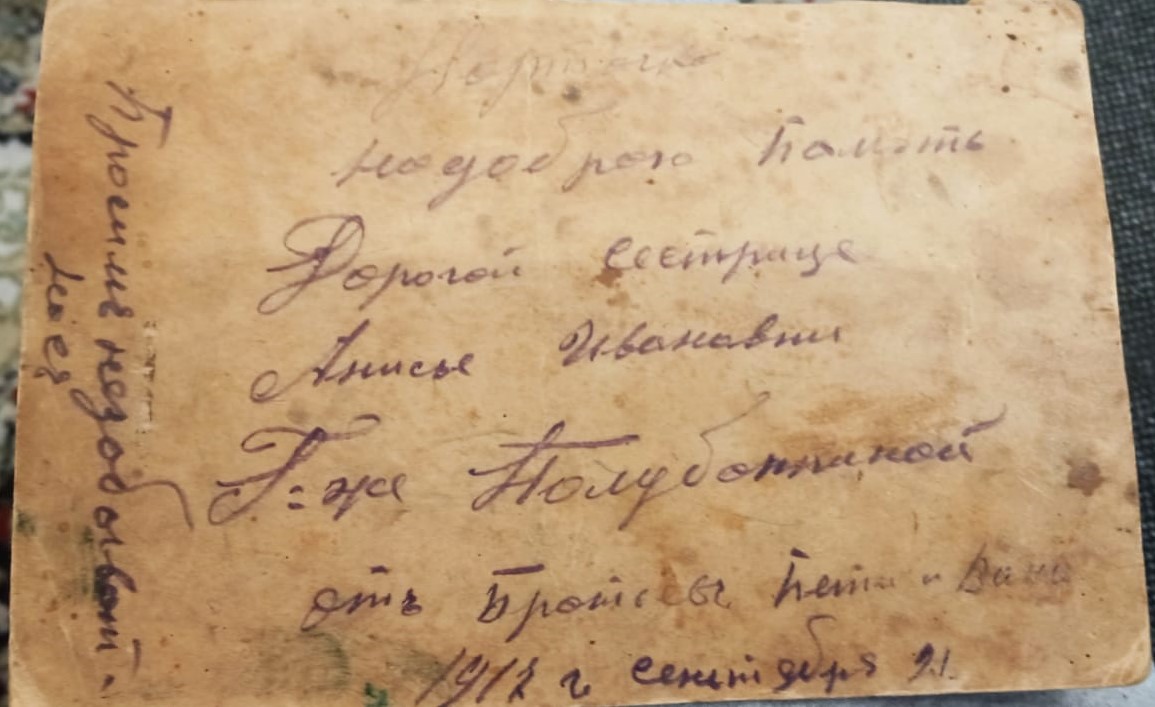 Карточка
надоброю Память
Дорогой сестрице
Анисье Ивановни
Г=же Полуботкиной
отъ Братьевъ Пети и Вани
1912 г сентября 21.
Просимъ незобыват.
Моея